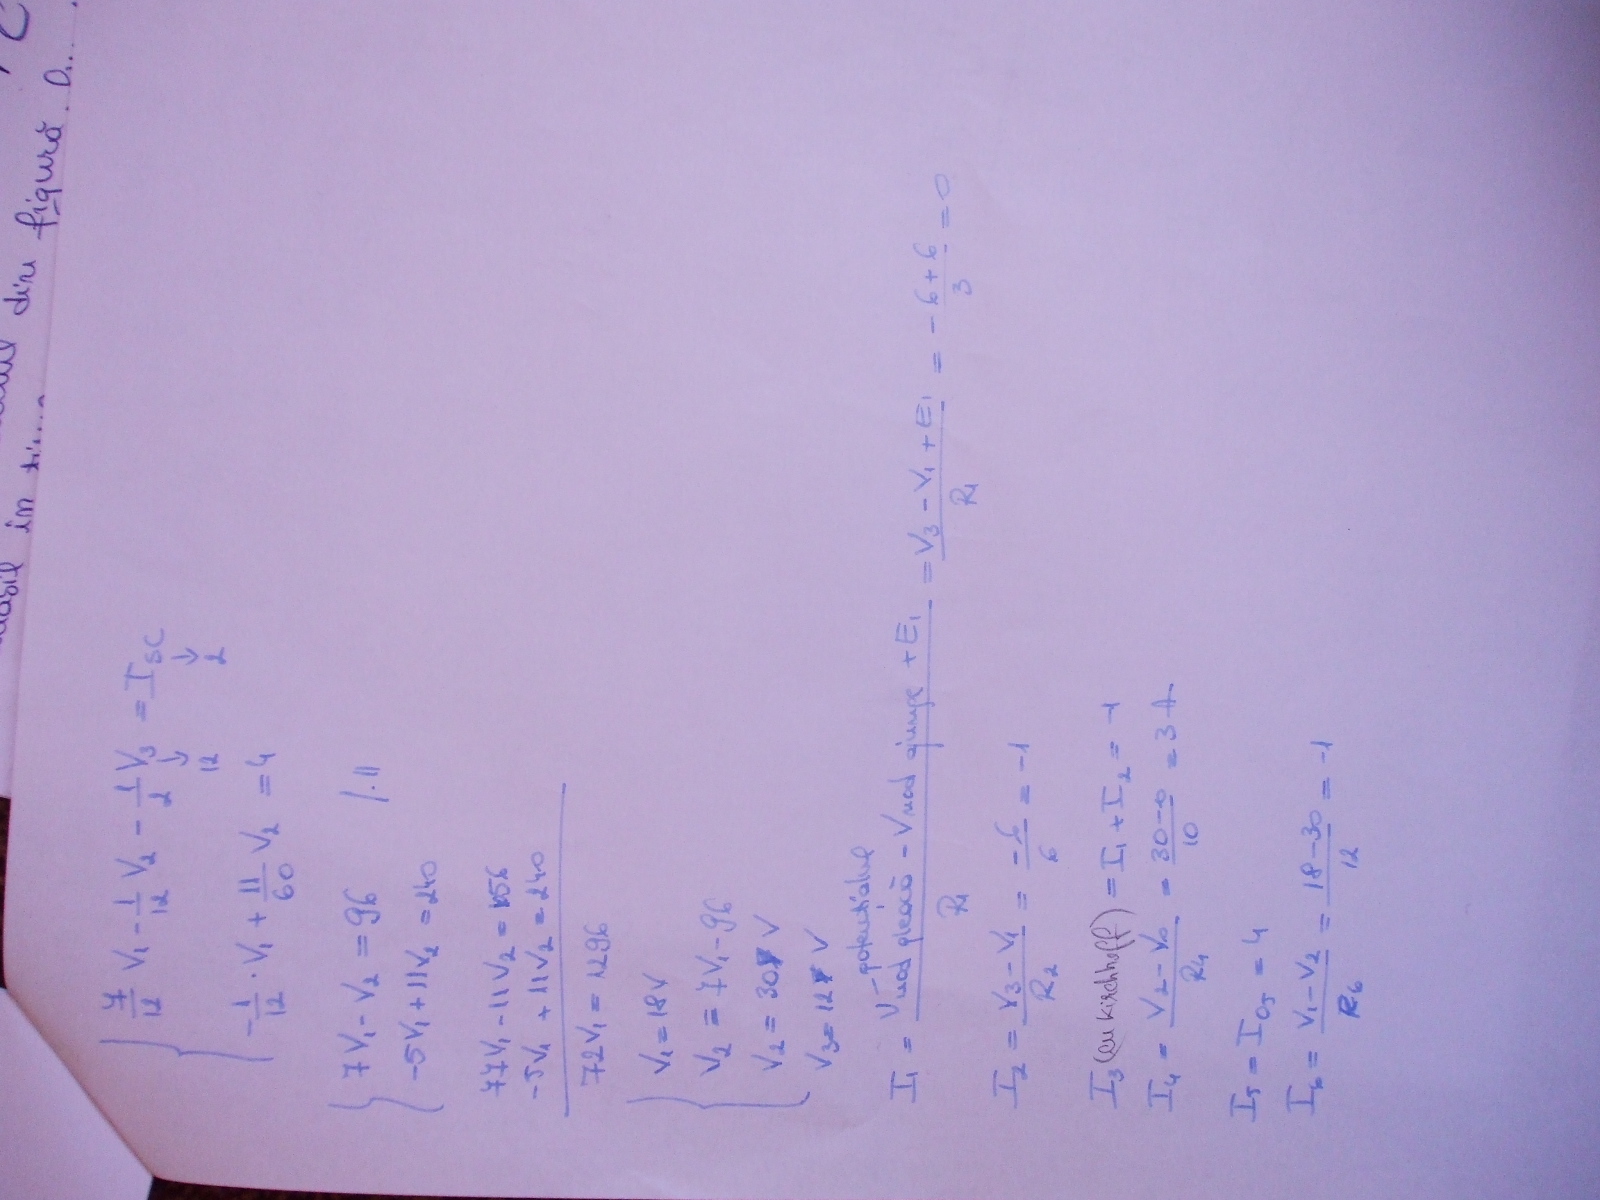 din figură.
în
7/12 V₁ - 1/12 V₂ - 1/2 V₃ = Isc
↓ ↓
12 2
-1/12 · V₁ + 11/60 V₂ = 4
7V₁ - V₂ = 96 /·11
-5V₁ + 11V₂ = 240
77V₁ - 11V₂ = 1056
-5V₁ + 11V₂ = 240
72V₁ = 1296
V₁ = 18V
V₂ = 7V₁ - 96
V₂ = 30 V
V₃ = 12 V
potențialul
I₁ = (Vnod pleacă - Vnod ajunge + E₁)/R₁ = (V₃ - V₁ + E₁)/R₁ = (-6+6)/3 = 0
I₂ = (V₃ - V₁)/R₂ = -6/6 = -1
I₃ (cu kirchhoff) = I₁ + I₂ = -1
I₄ = (V₂ - V₀)/R₄ = (30-0)/10 = 3 A
I₅ = I₀₅ = 4
I₆ = (V₁ - V₂)/R₆ = (18-30)/12 = -1